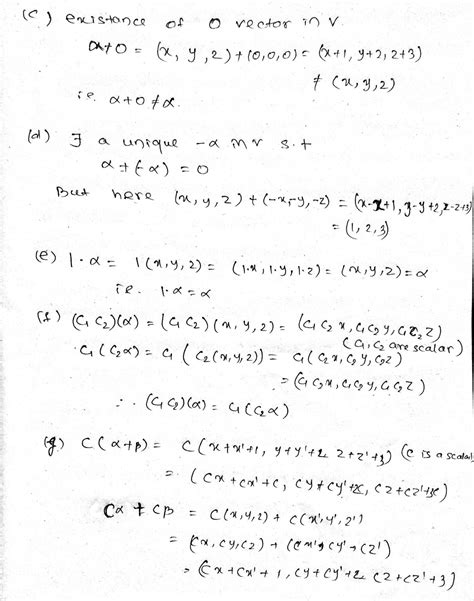 (c) existence of 0 vector in V.
α+0 = (x, y, z)+(0,0,0) = (x+1, y+2, z+3)
≠ (x,y,z)
i.e. α+0 ≠ α.
(d) ∃ a unique -α in V s.t
α + (-α) = 0
But here (x,y,z)+(-x,-y,-z) = (x-x+1, y-y+2, z-z+3)
= (1,2,3)
(e) 1·α = 1(x,y,z) = (1·x, 1·y, 1·z) = (x,y,z) = α
i.e. 1·α = α
(f) (C₁C₂)(α) = (C₁C₂)(x,y,z) = (C₁C₂x, C₁C₂y, C₁C₂z)
(C₁,C₂ are scalar)
C₁(C₂α) = C₁(C₂(x,y,z)) = C₁(C₂x, C₂y, C₂z)
= (C₁C₂x, C₁C₂y, C₁C₂z)
∴ (C₁C₂)(α) = C₁(C₂α)
(g) C(α+β) = C(x+x'+1, y+y'+2, z+z'+3) (C is a scalar
= (Cx+Cx'+C, Cy+Cy'+2C, Cz+Cz'+3C)
Cα + Cβ = C(x,y,z) + C(x',y',z')
= (Cx, Cy, Cz) + (Cx', Cy', Cz')
= (Cx+Cx'+1, Cy+Cy'+2, Cz+Cz'+3)